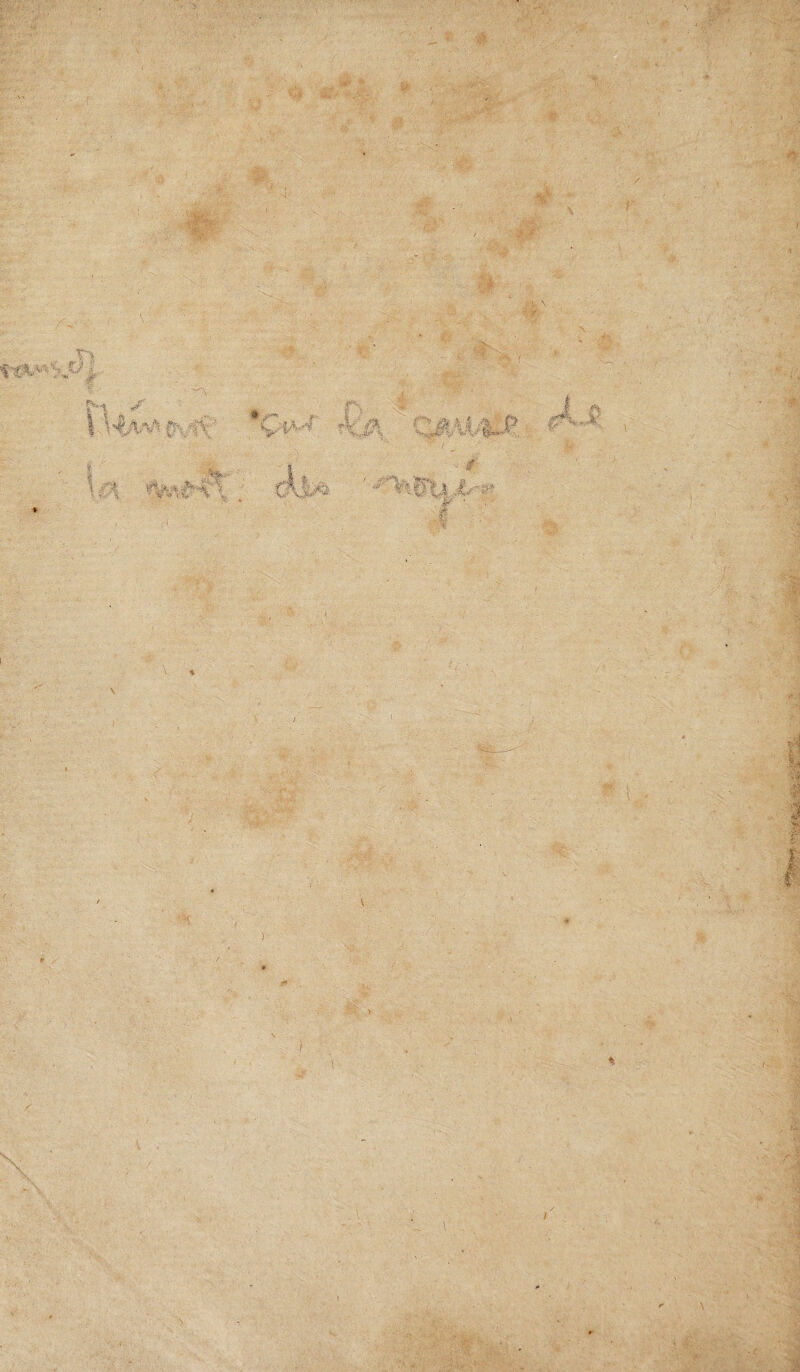 Mémoire Sur la cause de
la mort des noyés